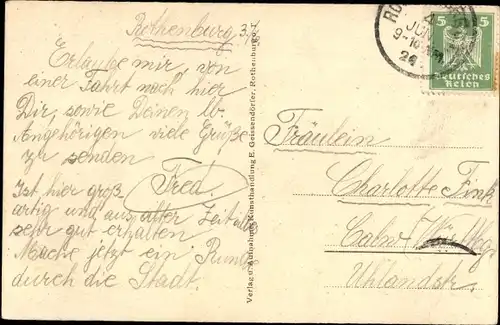 Rothenburg 3/
Erlaube mir, von
einer Fahrt nach hier
Dir, sowie Deinen lb.
Angehörigen viele Grüße
zu senden
Fred.
Ist hier groß-
artig und aus alter Zeit alles
sehr gut erhalten
Mache jetzt ein Rund
durch die Stadt.
Verlag u. Aufnahme Kunsthandlung E. Geissendörfer, Rothenburg o. T.
JUN
26
5 5
Deutsches
Reich
Fräulein
Charlotte Fink
Calw
Uhlandstr.